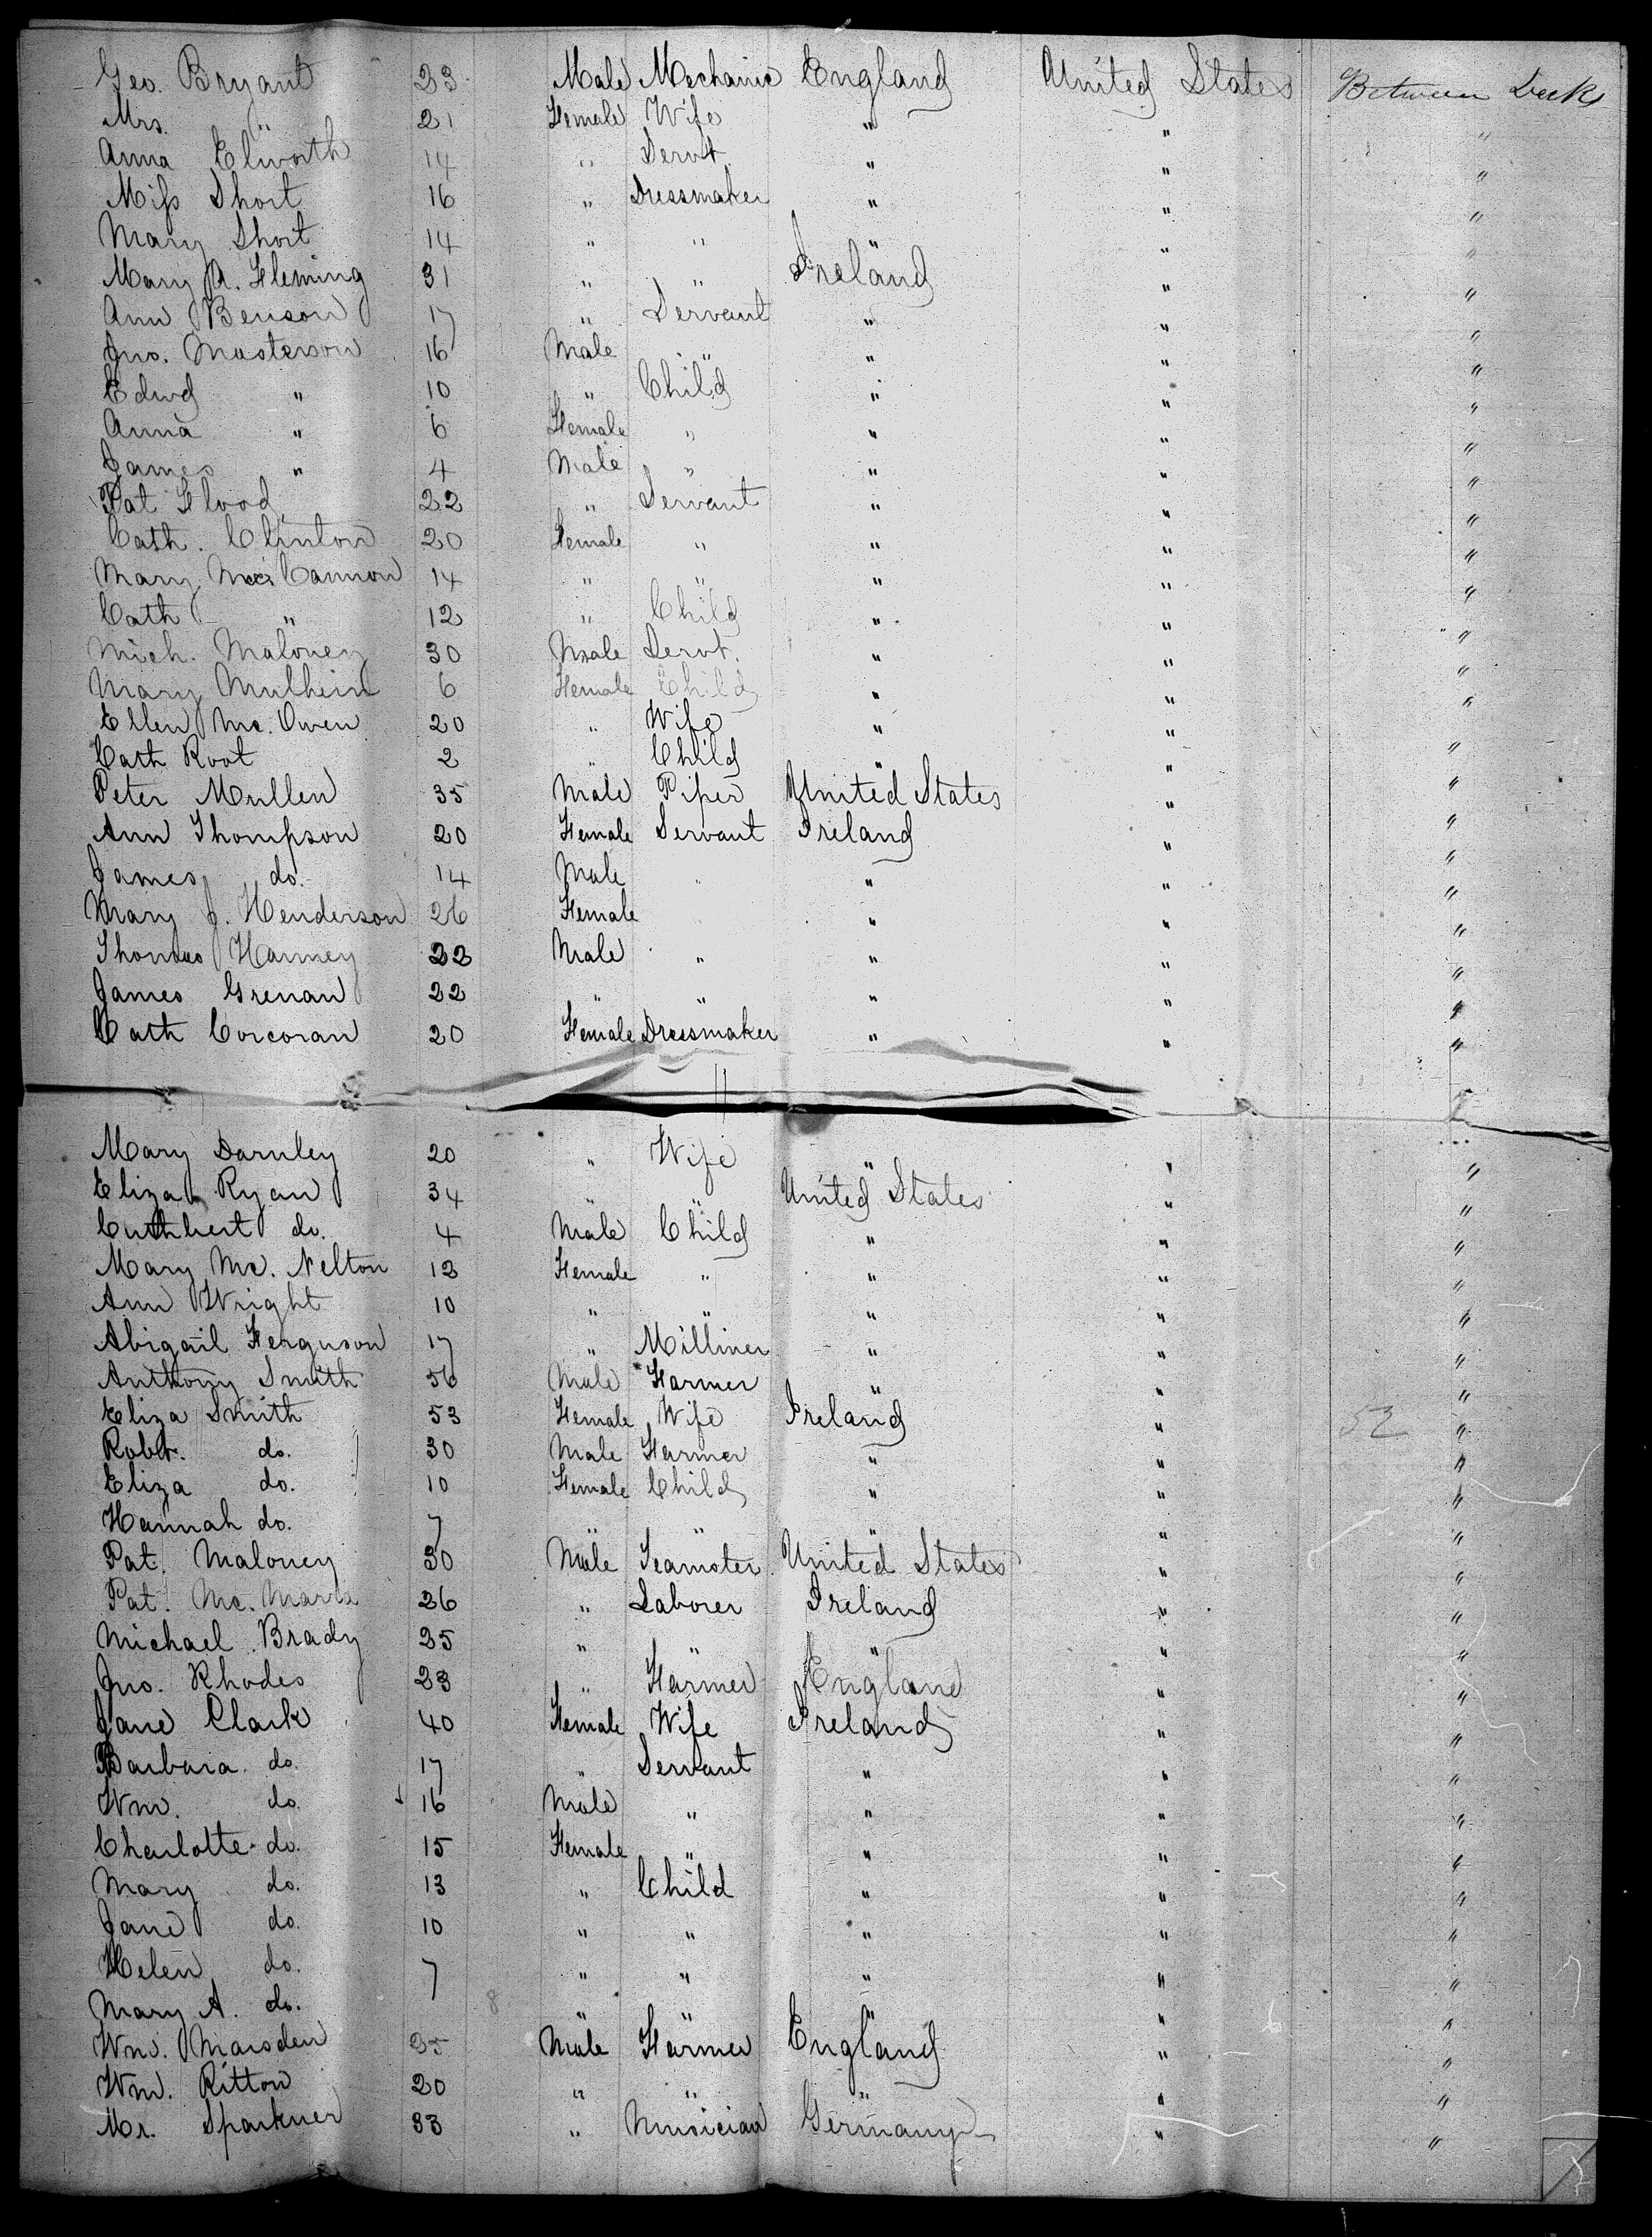 Geo. Bryant 23 Male Mechanic England United States Between Decks
Mrs. " 21 Female Wife " " "
Anna Elworth 14 " Servt. " " "
Miss Short 16 " Dressmaker " " "
Mary Short 14 " " " " "
Mary A. Fleming 31 " " Ireland " "
Ann Benson 17 " Servant " " "
Jno. Masterson 16 Male " " " "
Edwd " 10 " Child " " "
Anna " 6 Female " " " "
James " 4 Male " " " "
Pat Flood 22 " Servant " " "
Cath. Clinton 20 Female " " " "
Mary Cannon 14 " " " " "
Cath " 12 " Child " " "
Mich. Maloney 30 Male Servt. " " "
Mary Mulhein 6 Female Child " " "
Ellen Mc. Owen 20 " Wife " " "
Cath Root 2 " Child " " "
Peter Mullen 35 Male Piper United States " "
Ann Thompson 20 Female Servant Ireland " "
James do. 14 Male " " " "
Mary J. Henderson 26 Female " " " "
Thomas Hanney 22 Male " " " "
James Grenan 22 " " " " "
Cath Corcoran 20 Female Dressmaker " " "
Mary Darnley 20 " Wife " " "
Eliza Ryan 34 " " United States " "
Cuthbert do. 4 Male Child " " "
Mary Mc. Nelton 12 Female " " " "
Ann Wright 10 " " " " "
Abigail Ferguson 17 " Milliner " " "
Anthony Smith 56 Male Farmer " " "
Eliza Smith 53 Female Wife Ireland " 52 "
Robt. do. 30 Male Farmer " " "
Eliza do. 10 Female Child " " "
Hannah do. 7 " " " " "
Pat. Maloney 30 Male Teamster United States " "
Pat. Mc. 26 " Laborer Ireland " "
Michael Brady 25 " " " "
Jno. Rhodes 23 " Farmer England " "
Jane Clark 40 Female Wife Ireland " "
Barbara do. 17 " Servant " " "
Wm. do. 16 Male " " " "
Charlotte do. 15 Female " " " "
Mary do. 13 " Child " " "
Jane do. 10 " " " " "
Helen do. 7 " " " " "
Mary A. do. 8 " " " " "
Wm. Marsden 35 Male Farmer England " "
Wm. Ritton 20 " " " " "
Mr. Sparkner 33 " Musician Germany " "